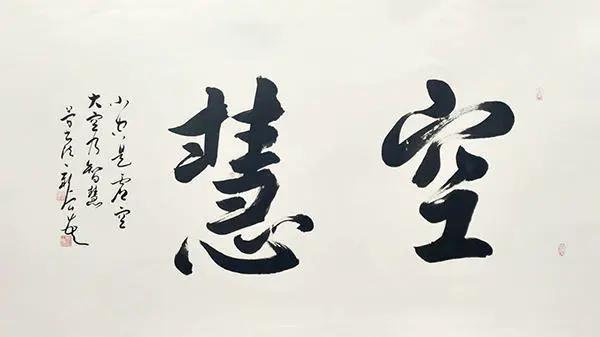 空慧
小空是虚空
大空乃智慧